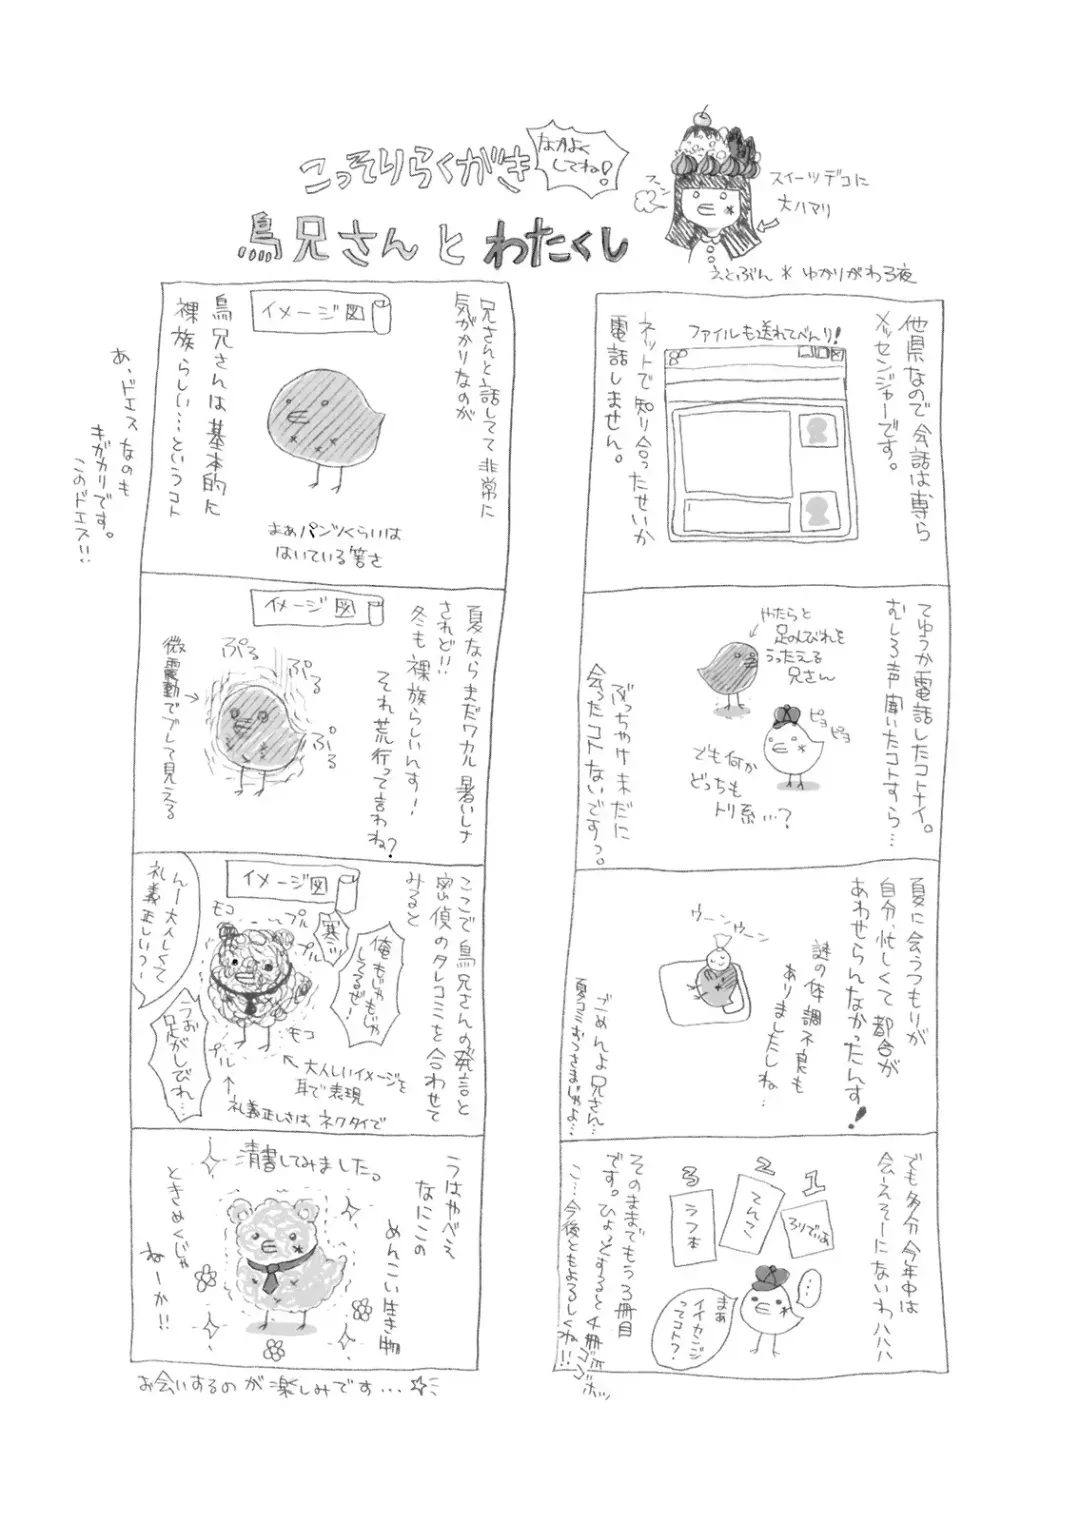 こっそりらくがき
なかよく
してね!
鳥兄さんとわたくし
フーン
スイーツデコに
大ハマリ
えとぶん * ゆかりがわる夜
他県なので会話は専ら
メッセンジャーです。
ファイルも送れてべんり!
ネットで知り合ったせいか
電話しません。
てゆうか電話したコトナイ。
むしろ声聞いたコトすら…
やたらと
足のしびれを
うったえる
兄さん
ピヨ
ピヨ
でも何か
どっちも
トリ系…?
ぶっちゃけまだに
会ったコトないですっ。
夏に会うつもりが
自分、忙しくて都合が
あわせらんなかったんす!
謎の体調不良も
ありましたしね…
ウーンウーン
ごめんよ兄さん…
夏コミおつさまじゃよ…
でも多分今年中は
会えそーにないわハハハ
1
ろりでぃあ
2
てんこく
3
ラフ本
…
まぁ
イイカンジ
ってコト?
そのままでもう3冊目
です。ひょっとすると4冊ゴゴボッ
こ…今後ともよろしくね!!
兄さんと話してて非常に
気がかりなのが
イメージ図
鳥兄さんは基本的に
裸族らしい…というコト
まぁパンツくらいは
はいている筈さ
あ、ドエスなのも
きがかりです。
このドエス!!
夏ならまだワカル暑いしさ
されど!!
冬も裸族らしいんす!
それ荒行って言わね?
イメージ図
ぷる
ぷる
ぷる
微震動でブレて見える
ここで鳥兄さんの発言と
密偵のタレコミを合わせて
みると
イメージ図
寒ッ
俺もじゃもじゃ
してるぜ!
モコ
プル
プル
モコ
プル
んー大人しくて
礼義正しいっ
うお
足がしびれ…
大人しいイメージを
耳で表現
礼義正しさは、ネクタイで
うはやべえ
なにこの
めんこい生き物
清書してみました。
ときめくじゃ
ねーか!!
お会いするのが楽しみです…☆